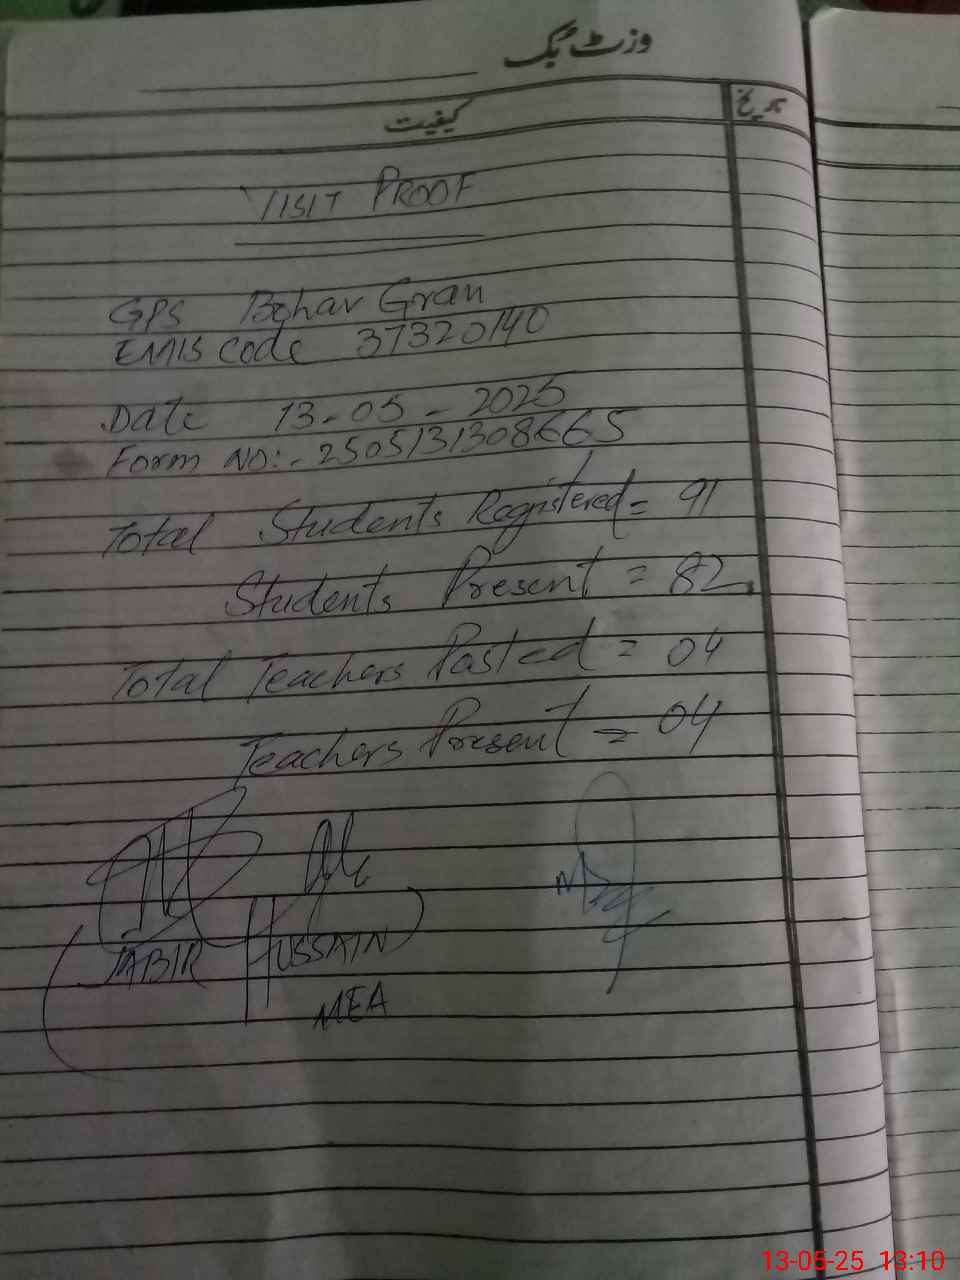 وزٹ بک
تاریخ
کیفیت
VISIT PROOF
GPS Bohar Gran
EMIS code 37320140
Date 13-05-2025
Form NO:- 2505131308665
Total Students Registered = 91
Students Present = 82
Total Teachers Posted = 04
Teachers Present = 04
(JABIR HUSSAIN)
MEA
13-05-25 13:10